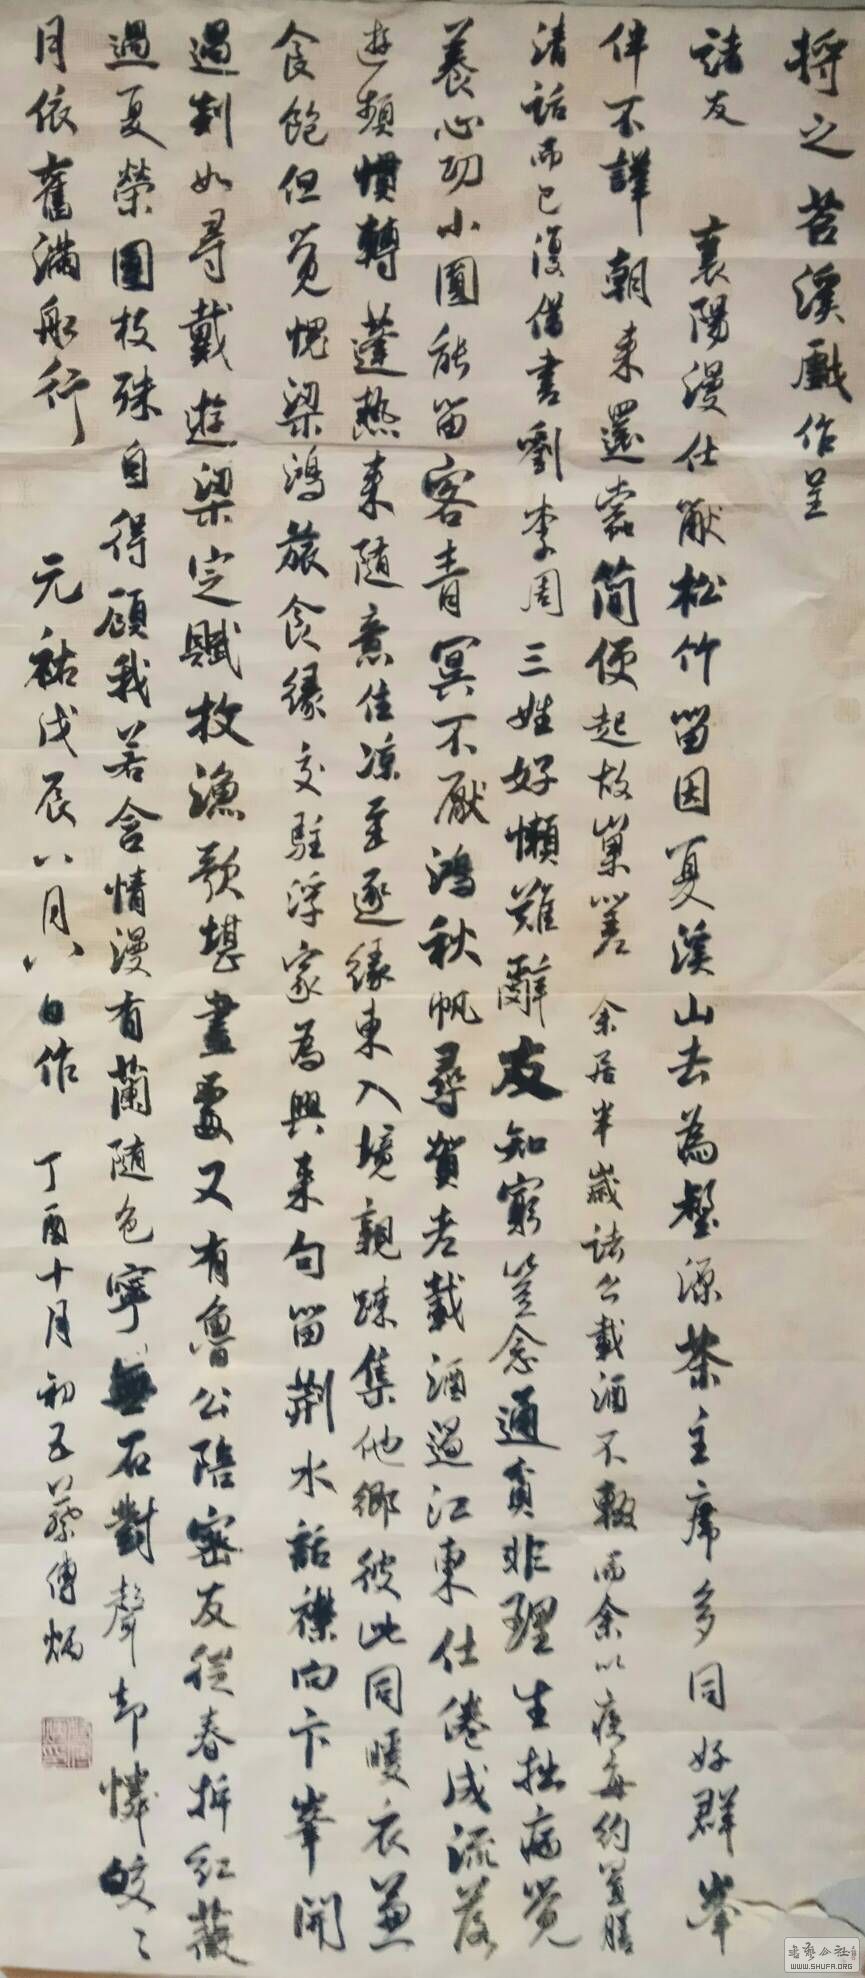 将之苕溪戲作呈
諸友 襄陽漫仕 松竹留因夏溪山去為秋源茶主席多同好群峯
伴不譁朝来還蠹簡便起故巢嗟 余居半歲諸公載酒不輟而余以疾每約置膳
清話而已復借書劉李周三姓好懶難辭友知窮豈念通貧非理生拙病覺
養心功小圃能留客青冥不厭鴻秋帆尋賀老載酒過江東仕倦成流落
遊頻慣轉蓬熱来随意住凉至逐緣東入境親疎集他鄉彼此同暖衣兼
食飽但覺愧梁鴻旅食緣交駐浮家為興来句留荆水話襟向卞峯開
過剡如尋戴遊梁定賦枚漁歌堪畫處又有魯公陪密友從春拆紅薇
過夏榮團枝殊自得顧我若含情漫有蘭随色寧無石對聲却憐皎〻
月依舊滿船行 元祐戊辰八月八日作 丁酉十月初五蔡傳炳
書藝公社
WWW.SHUFA.ORG